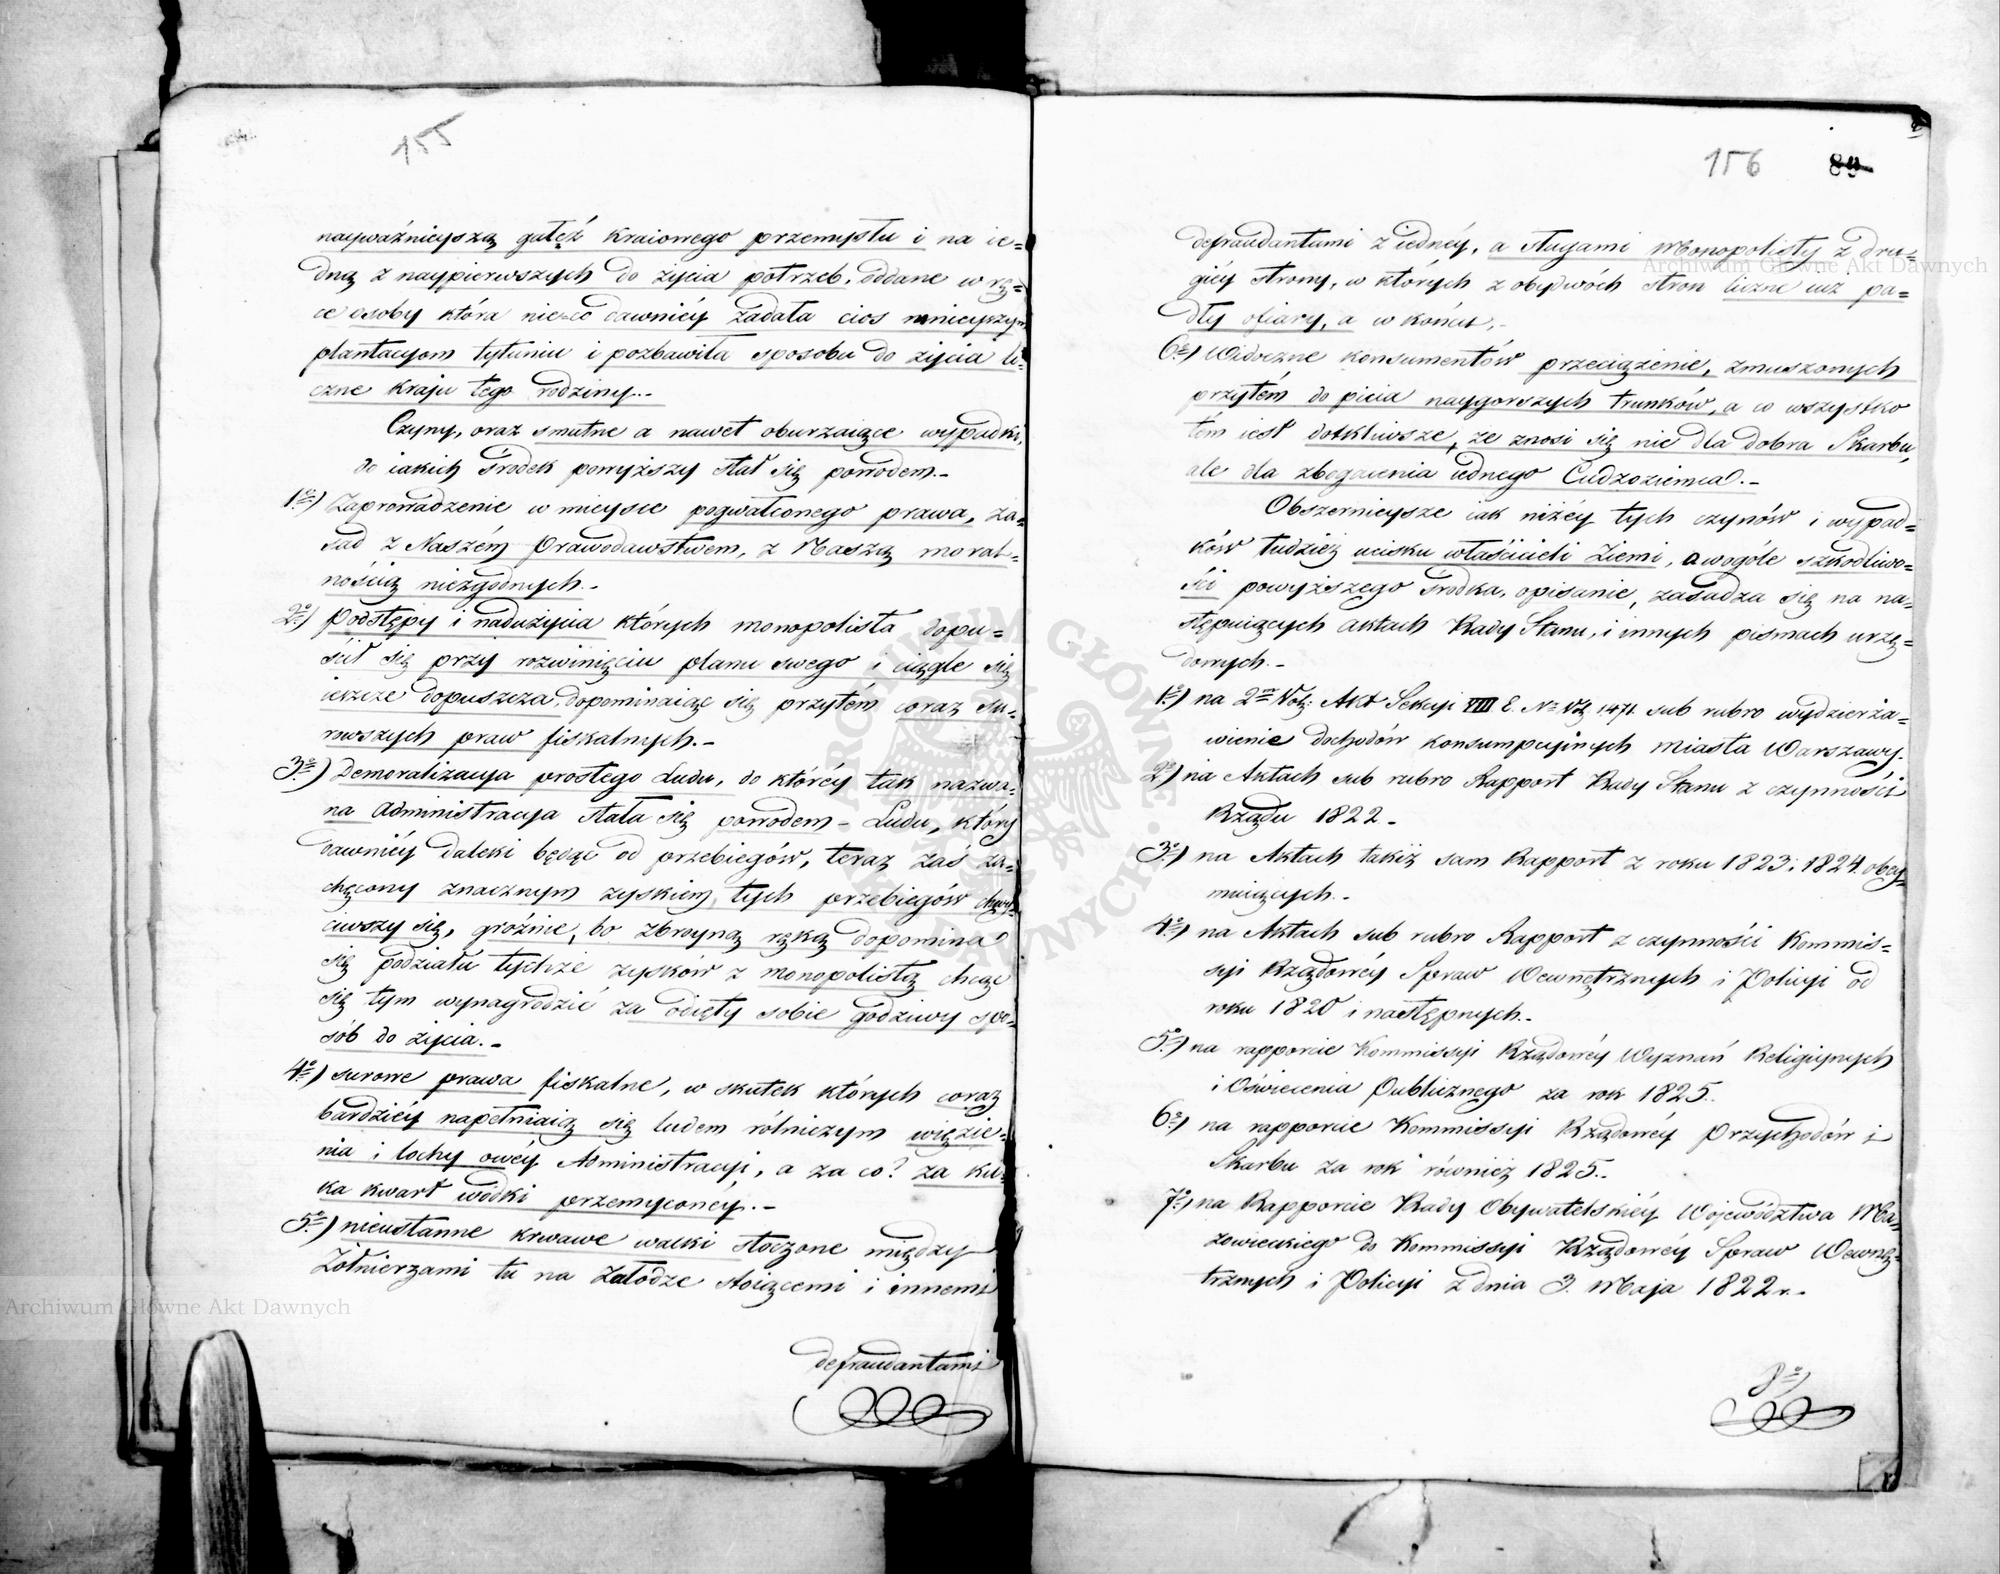 155
nayważnieyszą gałęź kraiowego przemysłu i na ie=
dną z naypierwszych do życia potrzeb, oddane w rę=
ce osoby która nie=co dawniéy zadała cios mnieyszym
plantacyom tytuniu i pozbawiła sposobu do życia li=
czne kraju tego rodziny.-
Czyny, oraz smutne a nawet oburzaiące wypadki,
do iakich środek powyższy stał się powodem.-
1o) Zaprowadzenie w mieysce pogwałconego prawa, za=
sad z Naszém Prawodawstwem, z Naszą moral=
nością niezgodnych.-
2o) Podstępy i nadużycia których monopolista dopu=
ścił się przy rozwinięciu planu swego i ciągle się
ieszcze dopuszcza, dopominaiąc się przytém coraz su=
rowszych praw fiskalnych.-
3o) Demoralizacya prostego Ludu, do któréy tak nazwa=
na Administracya stała się powodem - Ludu, który
dawniéy daleki będąc od przebiegów, teraz zaś za=
chęcony znacznym zyskiem, tych przebiegów chwy=
ciwszy się, gróźnie, bo zbroyną ręką dopomina
się podziału tychże zysków z monopolistą chcąc
się tym wynagrodzić za odięty sobie godziwy spo=
sób do życia.-
4o) surowe prawa fiskalne, w skutek których coraz
bardziéy napełniaią się ludem rólniczym więzie=
nia i lochy owéy Administracyi, a za co? za kil=
ka kwart wódki przemyconéy.-
5o) nieustanne krwawe walki stoczone między
Żołnierzami tu na Załodze stoiącemi i innemi
defraudantami
156 89
defraudantami z iednéy, a sługami Monopolisty z dru=
giéy strony, w których z obydwóch stron liczne iuż pa=
dły ofiary, a w końcu,-
6o) Widoczne konsumentów przeciążenie, zmuszonych
przytém do picia naygorszych trunków, a co wszystko
tém iest dotkliwsze, że znosi się nie dla dobra Skarbu,
ale dla zbogacenia iednego Cudzoziemca.-
Obszernieysze iak niżéy tych czynów i wypad=
ków tudzież ucisku właścicieli Ziemi, a wogóle szkodliwo=
ści powyższego środka, opisanie, zasadza się na na=
stępuiących aktach Rady Stanu, i innych pismach urzę=
dowych.-
1o) na 2m Vol: Akt Sekcyi VIII E. No 1471. sub rubro wydzierża=
wienie dochodów konsumpcyinych miasta Warszawy.
2o) na Aktach sub rubro Rapport Rady Stanu z czynności
Rządu 1822 -
3o) na Aktach takiż sam Rapport z roku 1823 i 1824. obey=
muiących.-
4o) na Aktach sub rubro Rapport z czynności Kommis=
syi Rządowéy Spraw Wewnętrznych i Policyi od
roku 1820 i następnych.-
5o) na rapporcie Kommissyi Rządowéy Wyznań Religiynych
i Oświecenia Publicznego za rok 1825.
6o) na rapporcie Kommissyi Rządowéy Przychodów i
Skarbu za rok również 1825.-
7o) na Rapporcie Rady Obywatelskiéy Województwa Ma=
zowieckiego do Kommissyi Rządowéy Spraw Wewnę=
trznych i Policyi z dnia 3. Maja 1822 r.-
8o)
Archiwum Główne Akt Dawnych
Archiwum Główne Akt Dawnych
ARCHIWUM GŁÓWNE AKT DAWNYCH